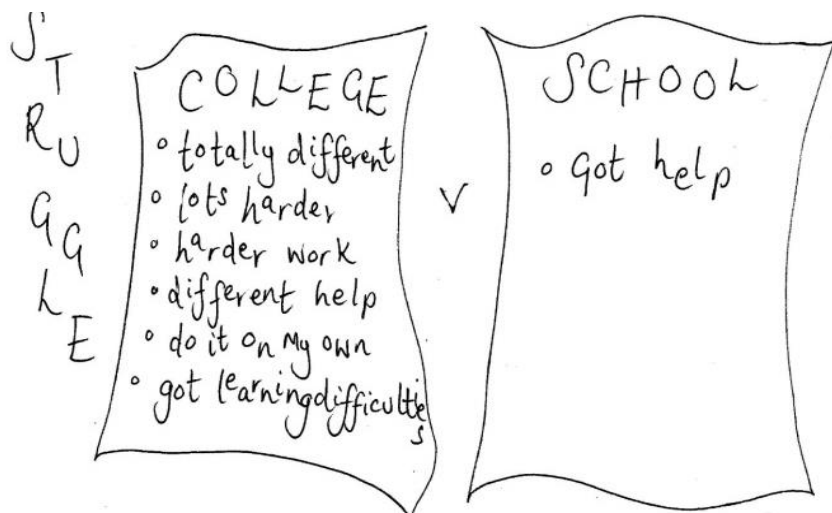 STRUGGLE
COLLEGE
• totally different
• lots harder
• harder work
• different help
• do it on my own
• got learningdifficulties
v
SCHOOL
• Got help